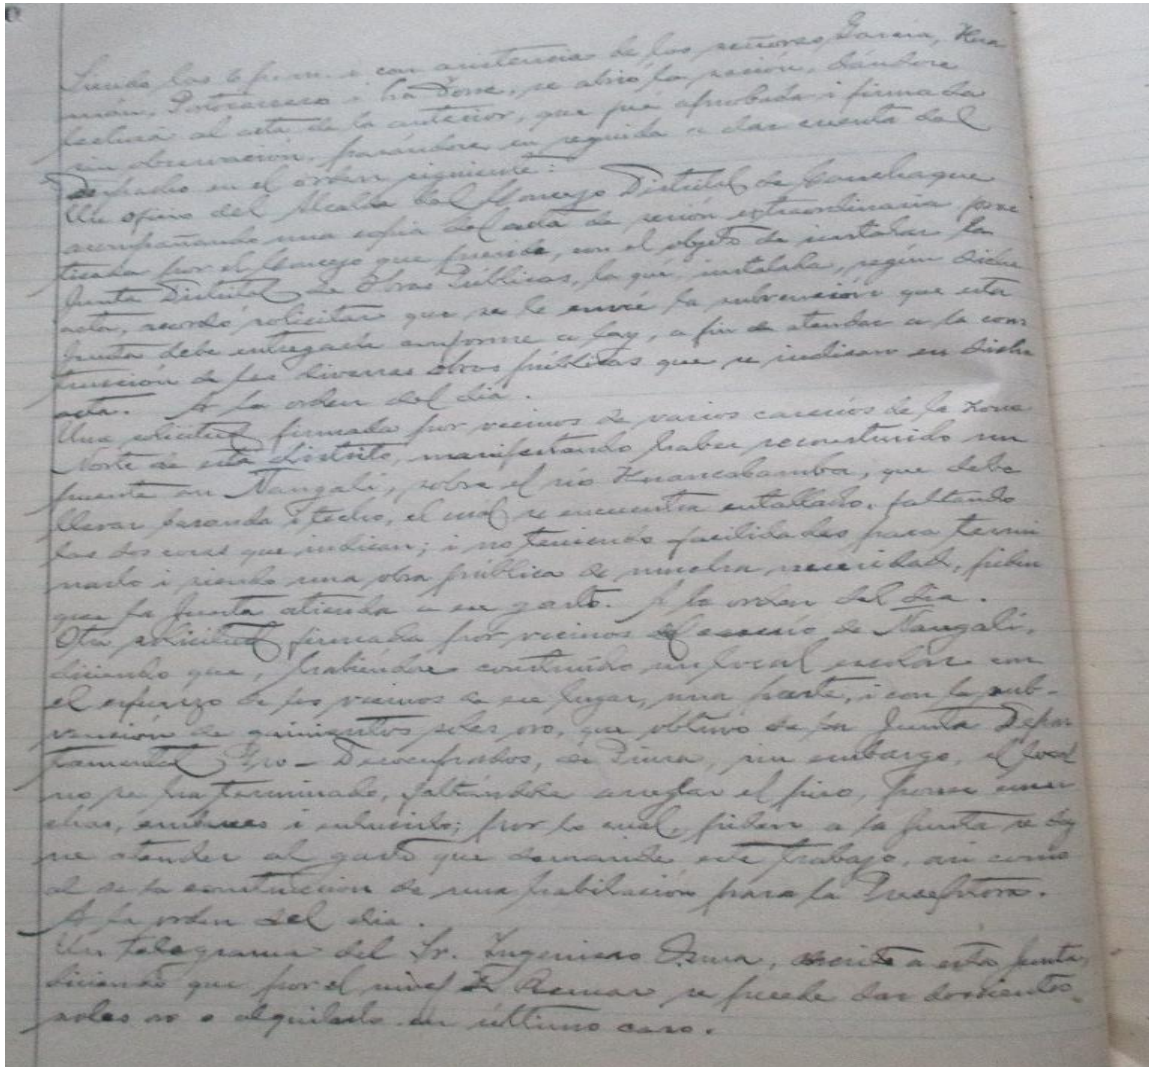 Siendo las 6 p.m. i con asistencia de los señores García, Hua
mán, Portocarrero i La Torre, se abrió la sesión, dándose
lectura al acta de la anterior, que fué aprobada i firmada
sin observación, pasándose en seguida a dar cuenta del
despacho en el orden siguiente:
Un oficio del Alcalde del Concejo Distrital de Canchaque
acompañando una copia del acta de sesión extraordinaria prac
ticada por el Concejo que preside, con el objeto de instalar la
Junta Distrital de Obras Públicas, la que, instalada, según dicha
acta, acordó solicitar que se le envíe la subvención que esta
Junta debe entregarla conforme a ley, a fin de atender a la cons
trucción de las diversas obras públicas que se indican en dicha
acta. A la orden del dia.
Una solicitud firmada por vecinos de varios caseríos de la zona
Norte de este Distrito, manifestando haber reconstruido un
puente en Nangali, sobre el rio Huancabamba, que debe
llevar baranda i techo, el cual se encuentra entallado, faltando
las dos cosas que indican; i no teniendo facilidades para termi
narlo i siendo una obra pública de mucha necesidad, piden
que la Junta atienda a su gasto. A la orden del dia.
Otra solicitud firmada por vecinos del caserío de Nangali,
diciendo que, habiéndose construido un local escolar con
el esfuerzo de los vecinos de ese lugar, una parte, i con la sub-
vención de quinientos soles oro, que obtuvo de la Junta Depar
tamental Pro-Desocupados, de Piura, sin embargo, el local
no se ha terminado, faltándole arreglar el piso, poner
i enlucirlo; por lo cual, piden a la Junta se dig
ne atender al gasto que demande este trabajo, asi como
al de la construcción de una habitación para la Preceptora.
A la orden del dia.
Un telegrama del Sr. Ingeniero a esta Junta,
diciendo que por el nivel se puede dar doscientos
soles oro o alquilarlo en último caso.